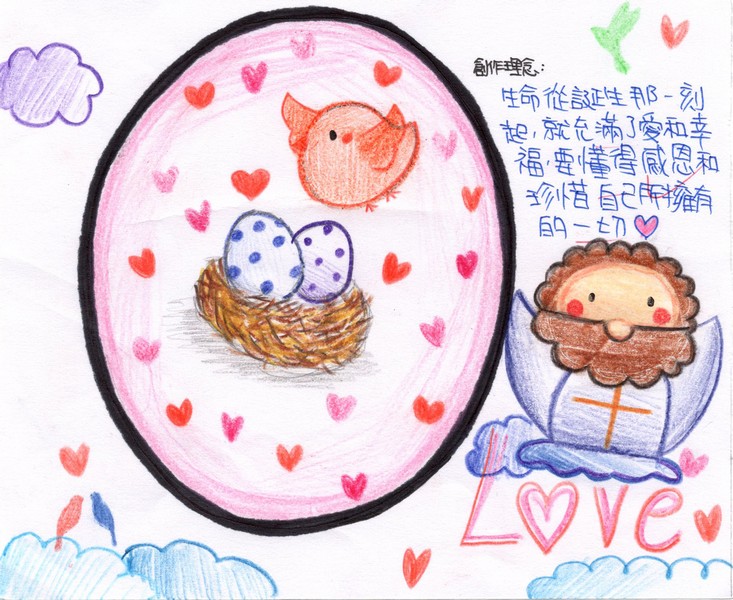 創作理念:
生命從誕生那一刻
起,就充滿了愛和幸
福,要懂得感恩和
珍惜自己所擁有
的一切
Love